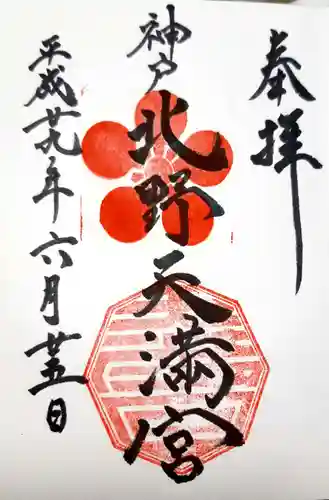 奉拝
神戸
北野天満宮
平成廿九年六月廿五日